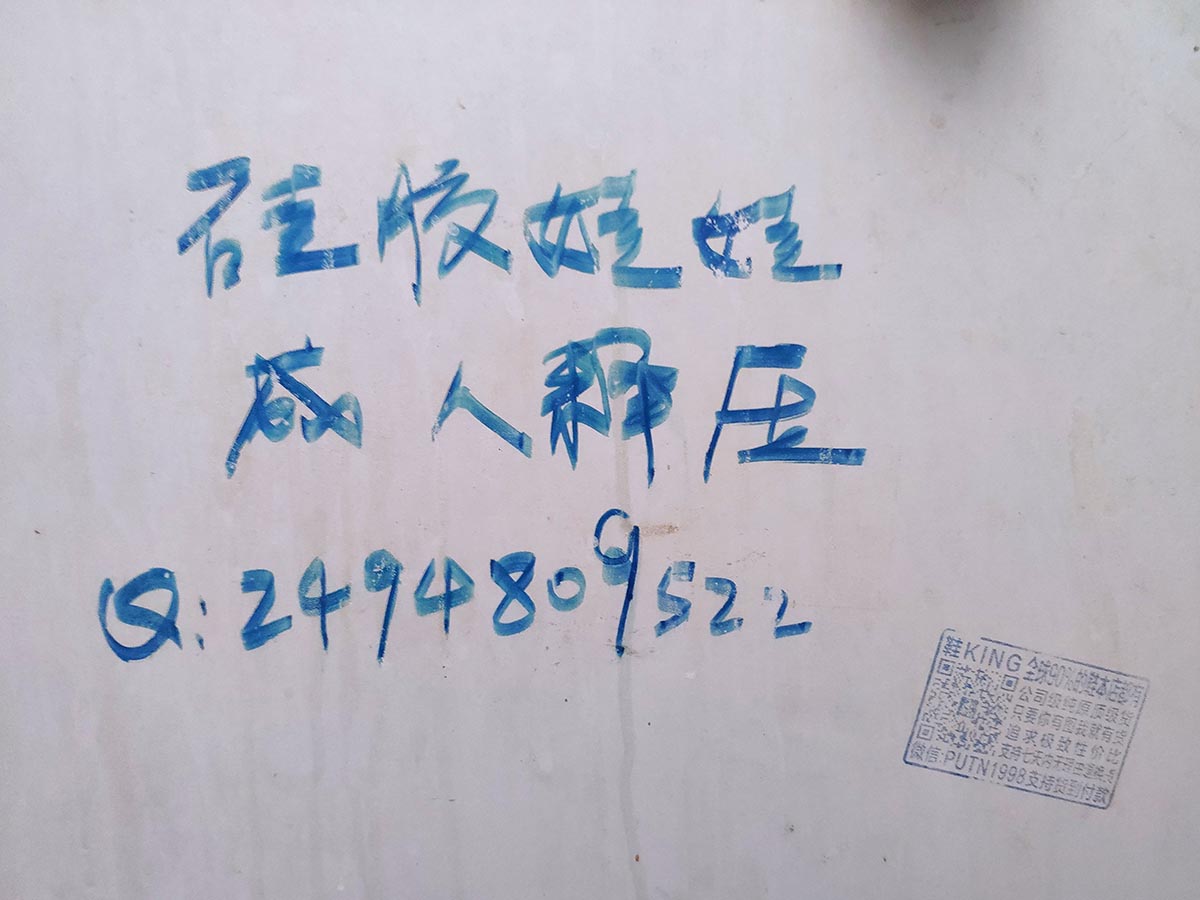 硅胶娃娃
成人释压
Q:2494809522
鞋KING 全球90%的鞋本店都有
公司级纯原顶级货
只要你有图我就有货
追求极致性价比
支持七天内
微信:PUTN1998支持货到付款